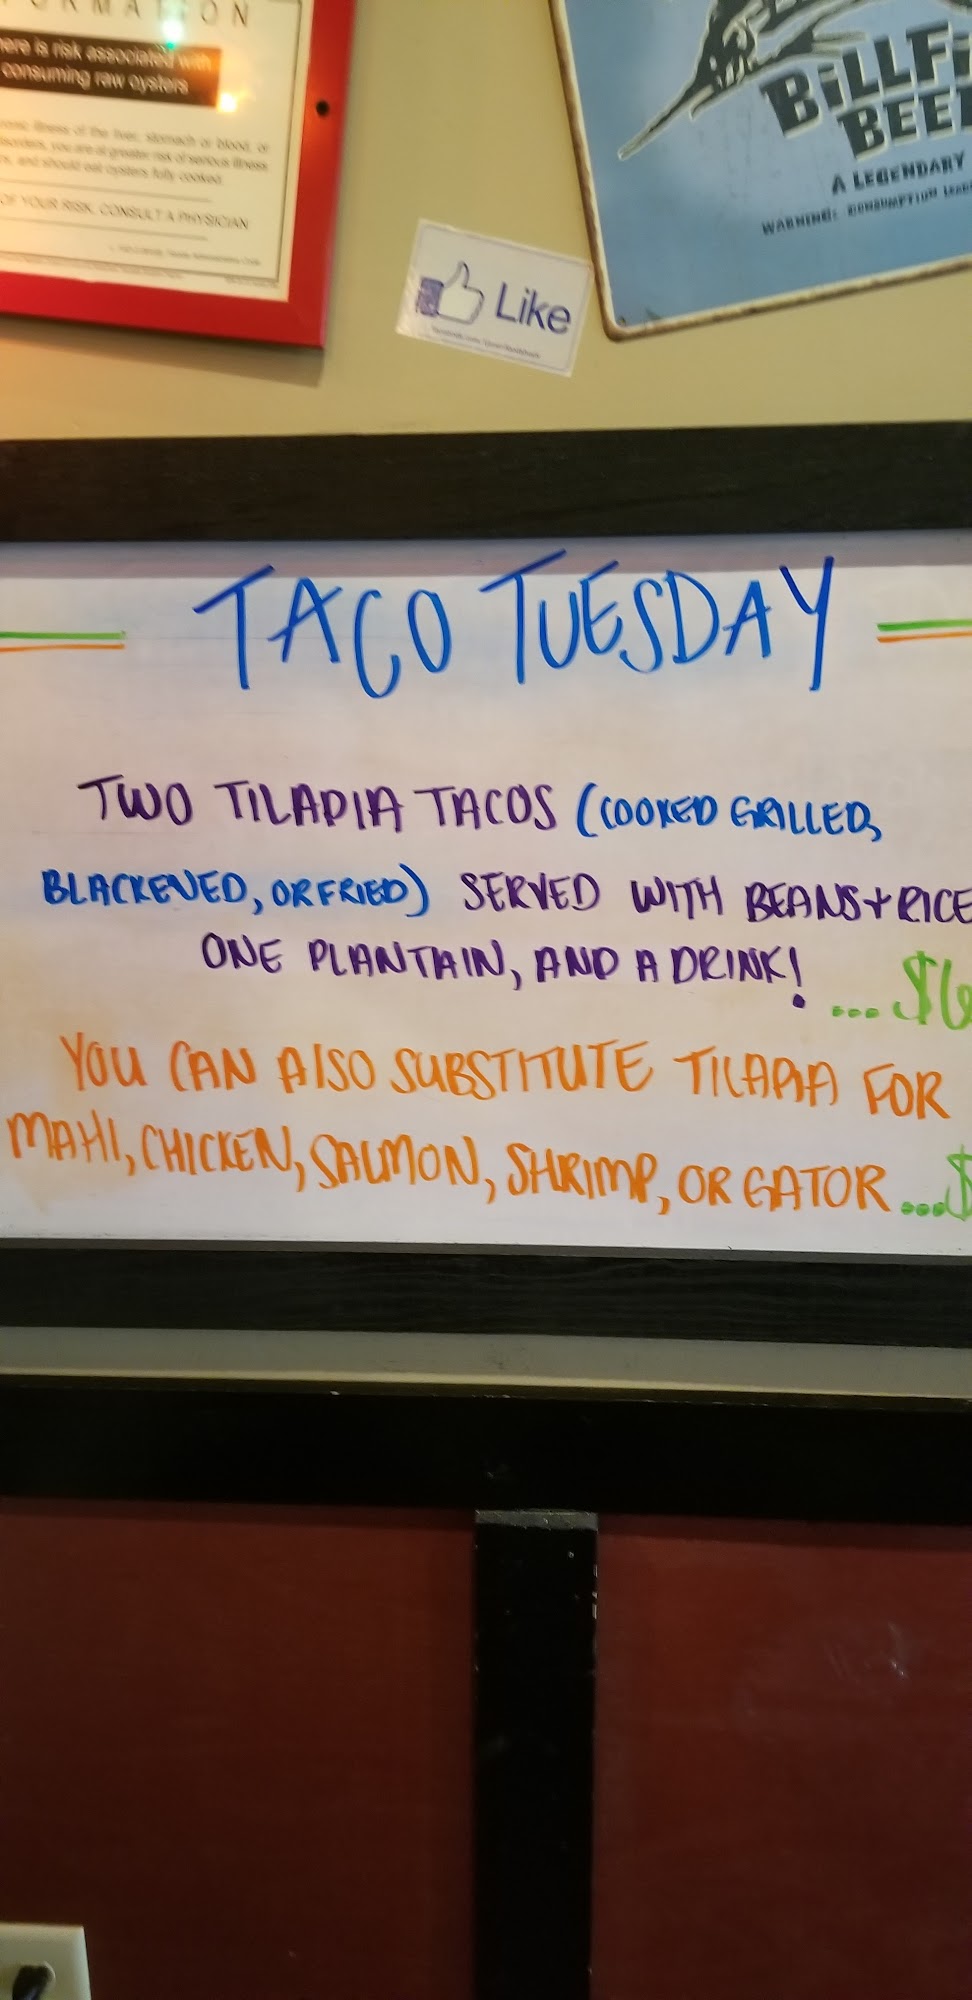 ORMATION
here is risk associated with
consuming raw oysters
ronic illness of the liver, stomach or blood, or
disorders, you are at greater risk of serious illness
and should eat oysters fully cooked.
OF YOUR RISK, CONSULT A PHYSICIAN
BILLFI
BEE
A LEGENDARY
WARNING: CONSUMPTION
Like
TACO TUESDAY
TWO TILAPIA TACOS (COOKED GRILLED,
BLACKENED, OR FRIED) SERVED WITH BEANS + RICE
ONE PLANTAIN, AND A DRINK!
...$6
YOU CAN ALSO SUBSTITUTE TILAPIA FOR
MAHI, CHICKEN, SALMON, SHRIMP, OR GATOR ...$